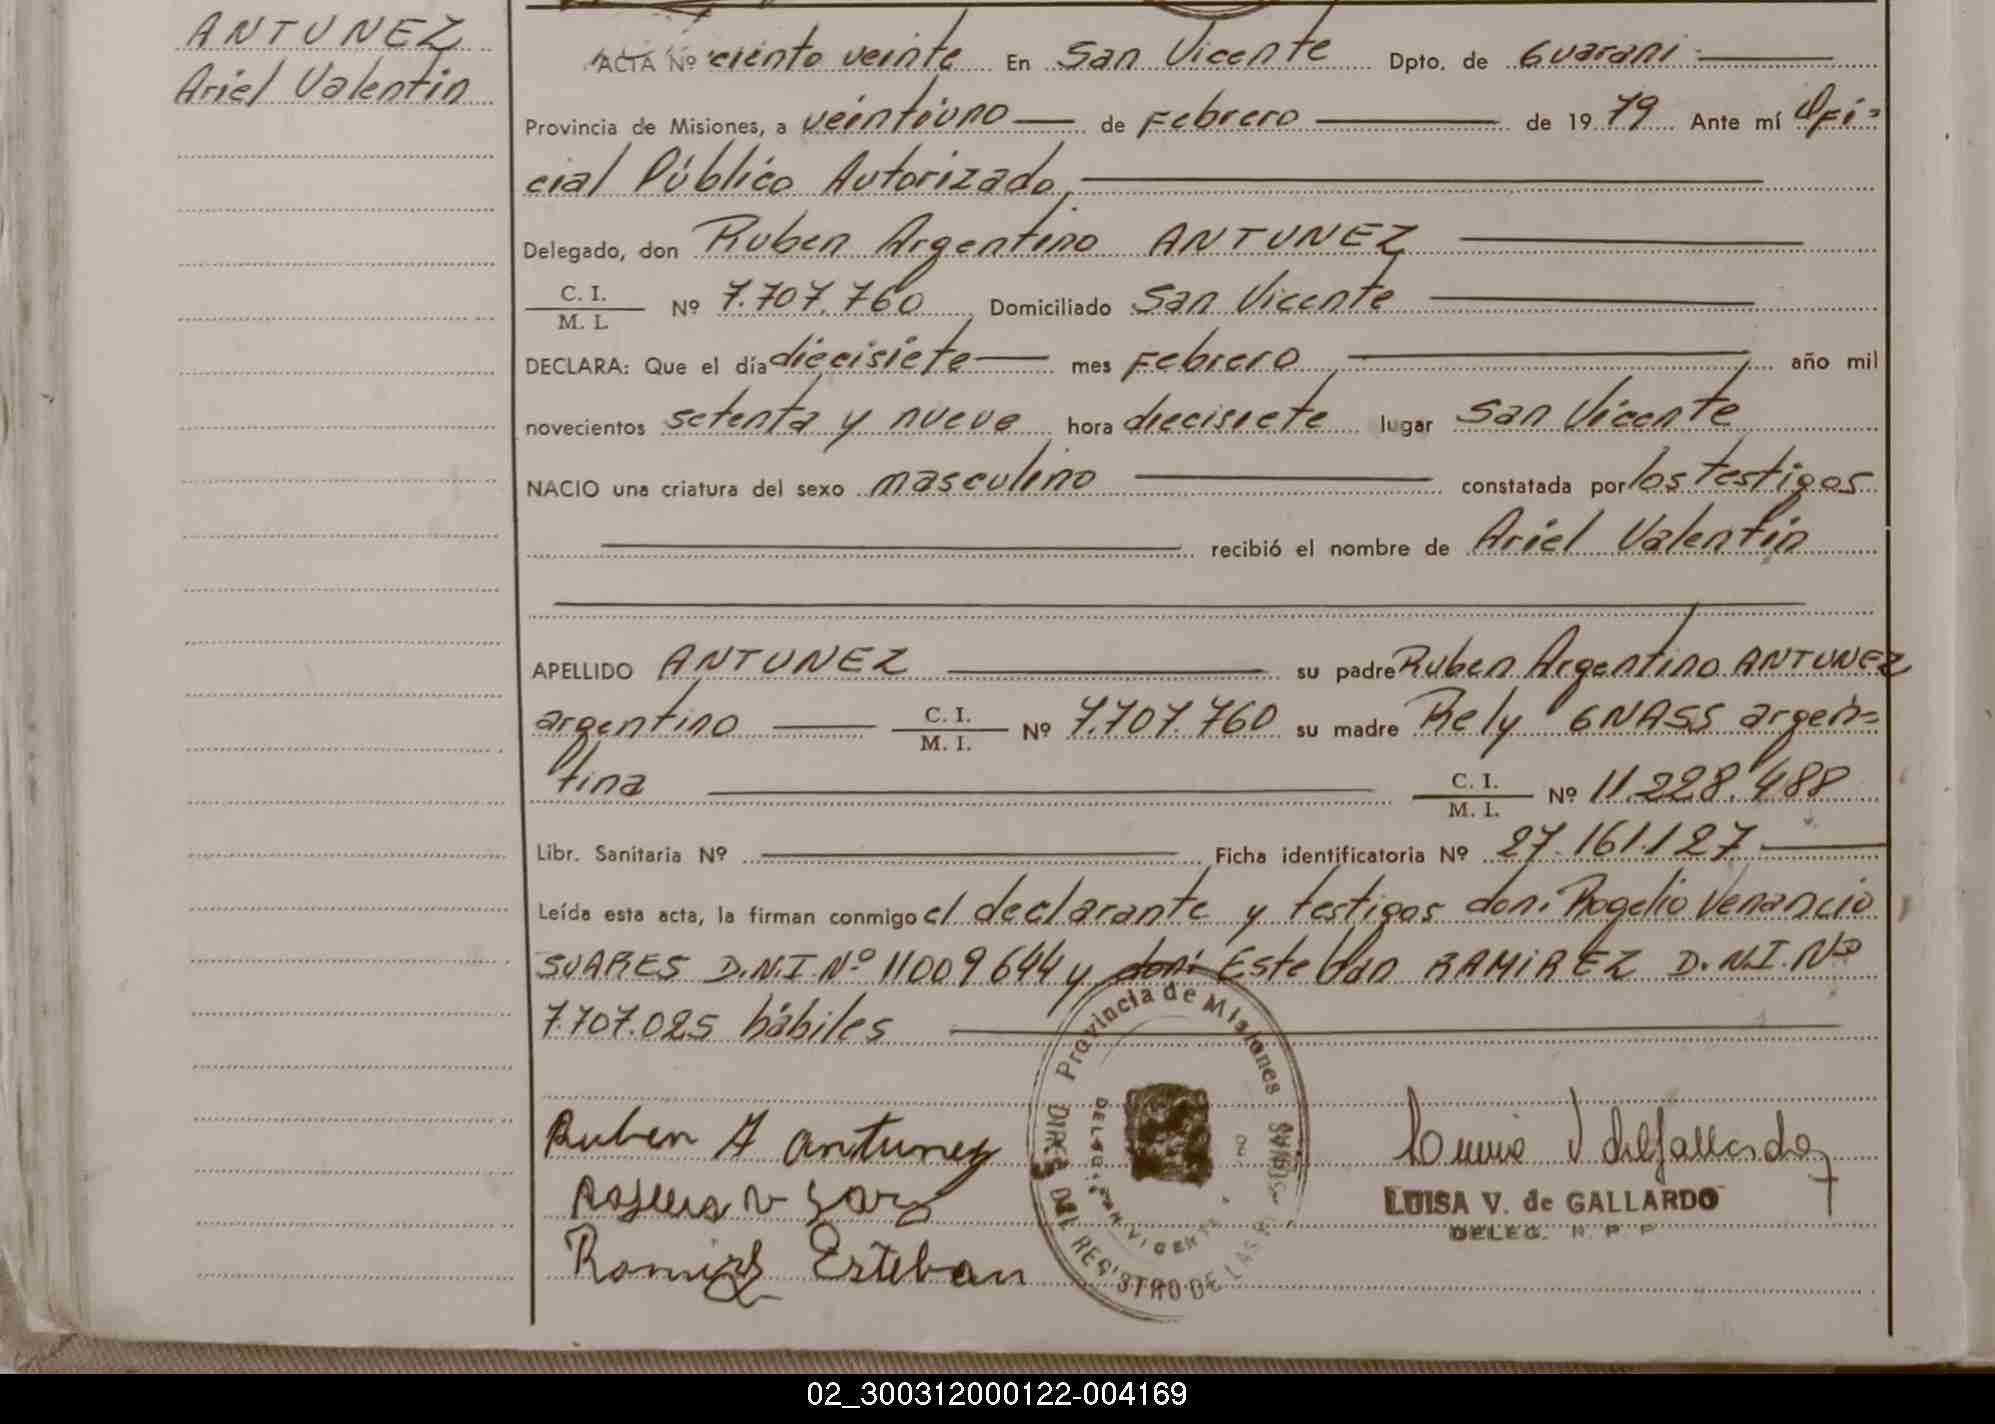 ANTUNEZ
Ariel Valentin
ACTA Nº ciento veinte En San Vicente Dpto. de Guarani
Provincia de Misiones, a veintiuno de Febrero de 1979 Ante mí Ofi=
cial Público Autorizado
Delegado, don Ruben Argentino ANTUNEZ
C. I.
M. I. Nº 7.707.760 Domiciliado San Vicente
DECLARA: Que el día diecisiete mes Febrero año mil
novecientos setenta y nueve hora diecisiete lugar San Vicente
NACIO una criatura del sexo masculino constatada por los testigos
recibió el nombre de Ariel Valentin
APELLIDO ANTUNEZ su padre Ruben Argentino ANTUNEZ
argentino C. I.
M. I. Nº 7.707.760 su madre Rely GNASS argen=
tina C. I.
M. I. Nº 11.228.488
Libr. Sanitaria Nº Ficha identificatoria Nº 27.161.127
Leída esta acta, la firman conmigo el declarante y testigos don: Rogelio Venancio
SUARES D.N.I Nº 11009644 y don: Esteban RAMIREZ D.N.I. Nº
7.707.025 hábiles
Provincia de Misiones
Ruben A Antunez
Ramirez Esteban
LUISA V. de GALLARDO
DELEG. R. P. P.
SAN VICENTE
REGISTRO DE LAS
02_300312000122-004169